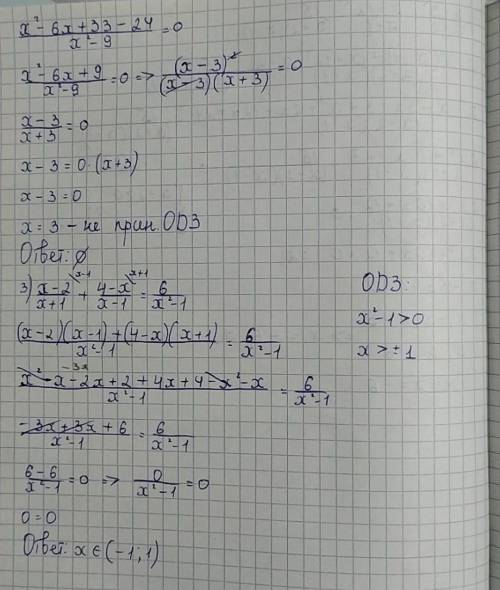 x² - 6x + 33 - 24 / x² - 9 = 0
x² - 6x + 9 / x² - 9 = 0 => (x - 3)² / (x - 3)(x + 3) = 0
x - 3 / x + 3 = 0
x - 3 = 0 · (x + 3)
x - 3 = 0
x = 3 - не прин. ОДЗ
Ответ: ∅
3) x - 2 / x + 1 \x-1 + 4 - x / x - 1 \x+1 = 6 / x² - 1
(x - 2)(x - 1) + (4 - x)(x + 1) / x² - 1 = 6 / x² - 1
-3x
x² - x - 2x + 2 + 4x + 4 - x² - x / x² - 1 = 6 / x² - 1
-3x + 3x + 6 / x² - 1 = 6 / x² - 1
6 - 6 / x² - 1 = 0 => 0 / x² - 1 = 0
0 = 0
Ответ: x ∈ (-1; 1)
ОДЗ:
x² - 1 > 0
x > ± 1